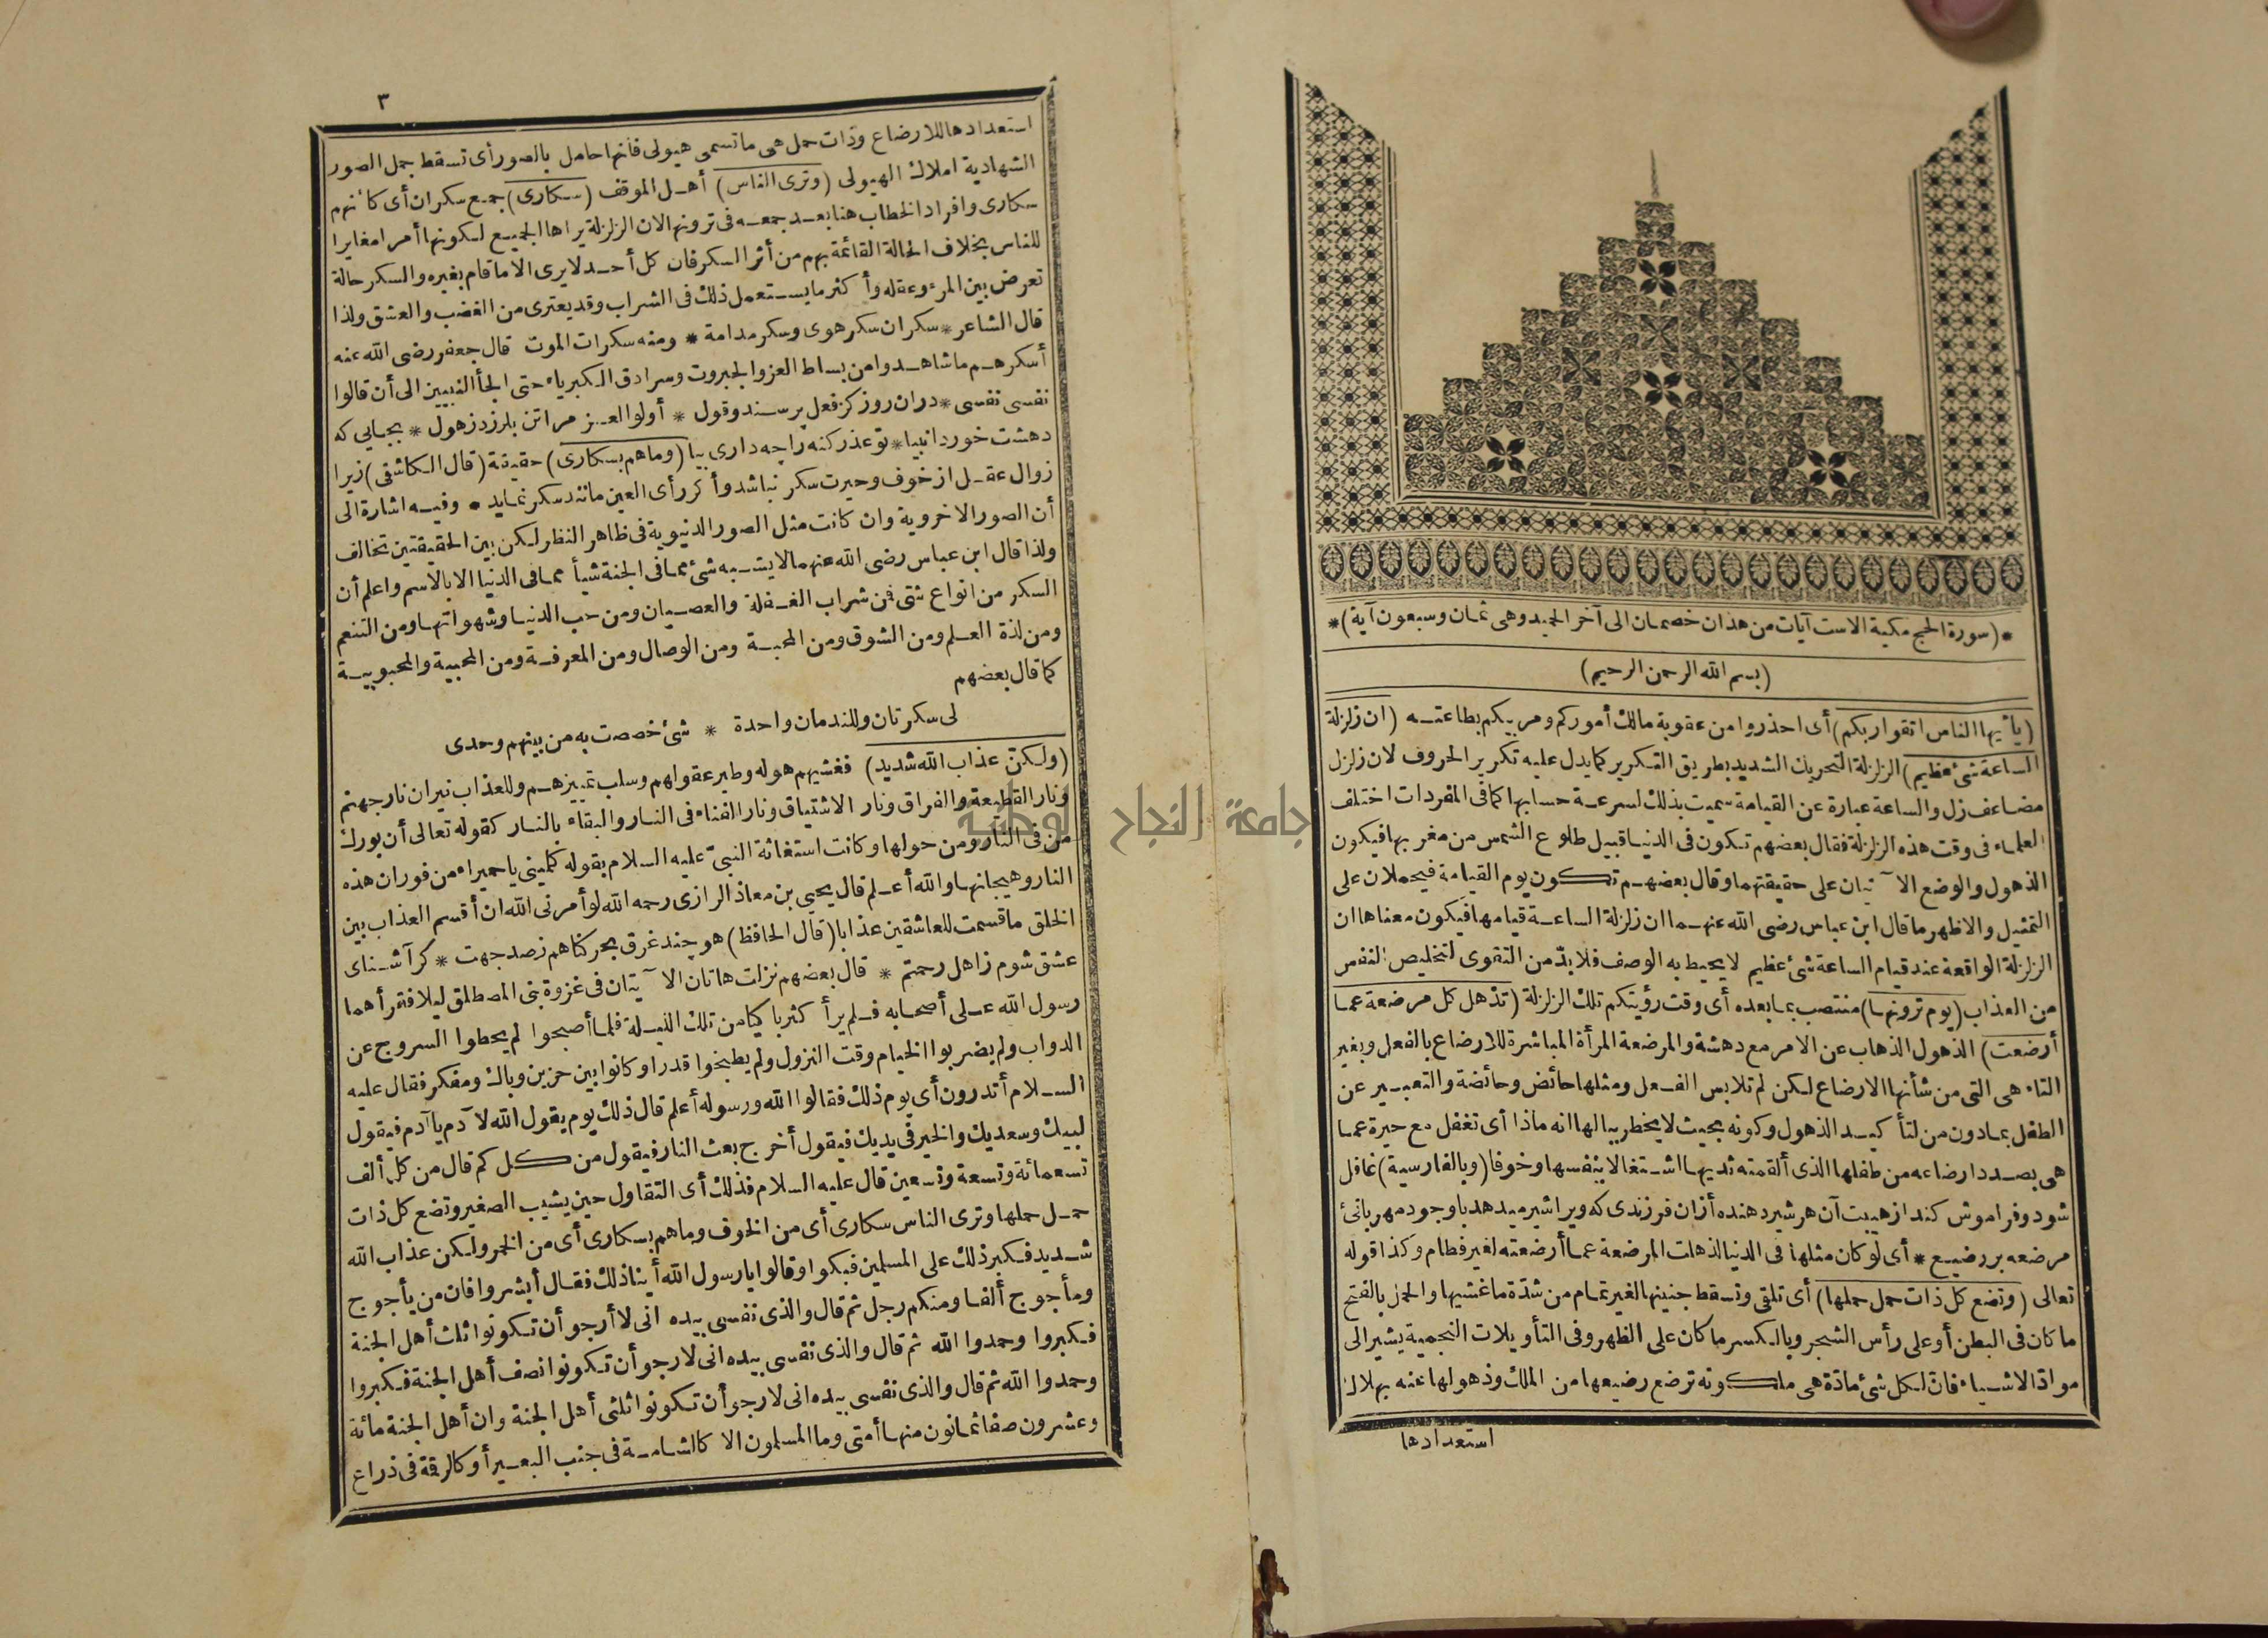 *(سورة الحج مكية الا ست آيات من هذان خصمان الى آخر الحميد وهى ثمان وسبعون آية)*
(بسم الله الرحمن الرحيم)
(يأيها الناس اتقوا ربكم) أى احذروا من عقوبة مالك أموركم ومربيكم بطاعته (ان زلزلة
الساعة شئ عظيم) الزلزلة التحريك الشديد بطريق التكرير كما يدل عليه تكرير الحروف لان زلزل
مضاعف زل والساعة عبارة عن القيامة سميت بذلك لسرعة حسابها كما فى المفردات اختلف
العلماء فى وقت هذه الزلزلة فقال بعضهم تكون فى الدنيا قبيل طلوع الشمس من مغربها فيكون
الذهول والوضع الآتيان على حقيقتهما وقال بعضهم تكون يوم القيامة فيحملان على
التمثيل والاظهر ما قال ابن عباس رضى الله عنهما ان زلزلة الساعة قيامها فيكون معناها ان
الزلزلة الواقعة عند قيام الساعة شئ عظيم لا يحيط به الوصف فلا بدّ من التقوى لتخليص النفس
من العذاب (يوم ترونها) منتصب بما بعده أى وقت رؤيتكم تلك الزلزلة (تذهل كل مرضعة عما
أرضعت) الذهول الذهاب عن الامر مع دهشة والمرضعة المرأة المباشرة للارضاع بالفعل وبغير
التاء هى التى من شأنها الارضاع لكن لم تلابس الفعل ومثلها حائض وحائضة والتعبير عن
الطفل بما دون من لتأكيد الذهول وكونه بحيث لا يخطر ببالها انه ماذا أى تغفل مع حيرة عما
هى بصدد ارضاعه من طفلها الذى ألقمته ثديها اشتغالا بنفسها وخوفا (وبالفارسية) غافل
شود وفراموش كند از هيبت آن هر شير دهنده أزان فرزندى كه ويرا شير ميدهد با وجود مهربانئ
مرضعه بر رضيع * أى لو كان مثلها فى الدنيا لذهلت المرضعة عما أرضعته لغير فطام وكذا قوله
تعالى (وتضع كل ذات حمل حملها) أى تلقى وتسقط جنينها لغير تمام من شدّة ما غشيها والحمل بالفتح
ما كان فى البطن أو على رأس الشجر وبالكسر ما كان على الظهر وفى التأويلات النجمية يشير الى
موادّ الاشياء فان لكل شئ مادّة هى ملكوته ترضع رضيعها من الملك وذهولها عنه بهلاك
استعدادها
٣
استعدادها للارضاع وذات حمل هى ما تسمى هيولى فانها حامل بالصور أى تسقط حمل الصور
الشهادية املاك الهيولى (وترى الناس) أهل الموقف (سكارى) جمع سكران أى كأنهم
سكارى وافراد الخطاب هنا بعد جمعه فى ترونها لان الزلزلة يراها الجميع لكونها أمرا مغايرا
للناس بخلاف الحالة القائمة بهم من أثر السكر فان كل أحد لا يرى الا ما قام بغيره والسكر حالة
تعرض بين المرء وعقله وأكثر ما يستعمل ذلك فى الشراب وقد يعترى من الغضب والعشق ولذا
قال الشاعر * سكران سكر هوى وسكر مدامة * ومنه سكرات الموت قال جعفر رضى الله عنه
أسكرهم ما شاهدوا من بساط العز والجبروت وسرادق الكبرياء حتى الجأ النبيين الى أن قالوا
نفسى نفسى * دران روز كز فعل پرسند وقول * أولوا العزم را تن بلرزد ز هول * بجايى كه
دهشت خورد انبيا * تو عذر كنه را چه دارى بيا (وما هم بسكارى) حقيقة (قال الكاشفى) زيرا
زوال عقل از خوف وحيرت سكر نباشد وأكر رأى العين مانند سكر نمايد * وفيه اشارة الى
أن الصور الاخروية وان كانت مثل الصور الدنيوية فى ظاهر النظر لكن بين الحقيقتين تخالف
ولذا قال ابن عباس رضى الله عنهما لا يشبه شئ مما فى الجنة شيأ مما فى الدنيا الا بالاسم واعلم أن
السكر من انواع شتى فمن شراب الغفلة والعصيان ومن حب الدنيا وشهواتها ومن التنعم
ومن لذة العلم ومن الشوق ومن المحبة ومن الوصال ومن المعرفة ومن المحبية والمحبوبية
كما قال بعضهم
لى سكرتان وللندمان واحدة * شئ خصصت به من بينهم وحدى
(ولكنّ عذاب الله شديد) فغشيهم هوله وطير عقولهم وسلب تمييزهم وللعذاب نيران نار جهنم
ونار القطيعة والفراق ونار الاشتياق ونار الفناء فى النار والبقاء بالنار كقوله تعالى أن بورك
من فى النار ومن حولها وكانت استغاثة النبىّ عليه السلام بقوله كلمينى يا حميراء من فوران هذه
النار وهيجانها والله أعلم قال يحيى بن معاذ الرازى رحمه الله لو أمرنى الله ان أقسم العذاب بين
الخلق ما قسمت للعاشقين عذابا (قال الحافظ) هر چند غرق بحر كناهم ز صد جهت * كر آشناى
عشق شوم ز اهل رحمتم * قال بعضهم نزلت هاتان الآيتان فى غزوة بنى المصطلق ليلا فقرأهما
رسول الله على أصحابه فلم ير أكثر باكيا من تلك الليلة فلما أصبحوا لم يحطوا السروج عن
الدواب ولم يضربوا الخيام وقت النزول ولم يطبخوا قدرا وكانوا بين حزين وباك ومفكر فقال عليه
السلام أتدرون أى يوم ذلك فقالوا الله ورسوله أعلم قال ذلك يوم يقول الله لآدم يا آدم فيقول
لبيك وسعديك والخير فى يديك فيقول أخرج بعث النار فيقول من كل كم قال من كل ألف
تسعمائة وتسعة وتسعين قال عليه السلام فذلك أى التقاول حين يشيب الصغير وتضع كل ذات
حمل حملها وترى الناس سكارى أى من الخوف وما هم بسكارى أى من الخمر ولكن عذاب الله
شديد فكبر ذلك على المسلمين فبكوا وقالوا يا رسول الله أينا ذلك فقال أبشروا فان من يأجوج
ومأجوج ألفا ومنكم رجل ثم قال والذى نفسى بيده انى لأرجو أن تكونوا ثلث أهل الجنة
فكبروا وحمدوا الله ثم قال والذى نفسى بيده انى لارجو أن تكونوا نصف أهل الجنة فكبروا
وحمدوا الله ثم قال والذى نفسى بيده انى لارجو أن تكونوا ثلثى أهل الجنة وان أهل الجنة مائة
وعشرون صفا ثمانون منها أمتى وما المسلمون الا كالشامة فى جنب البعير أو كالرقة فى ذراع
جامعة النجاح الوطنية